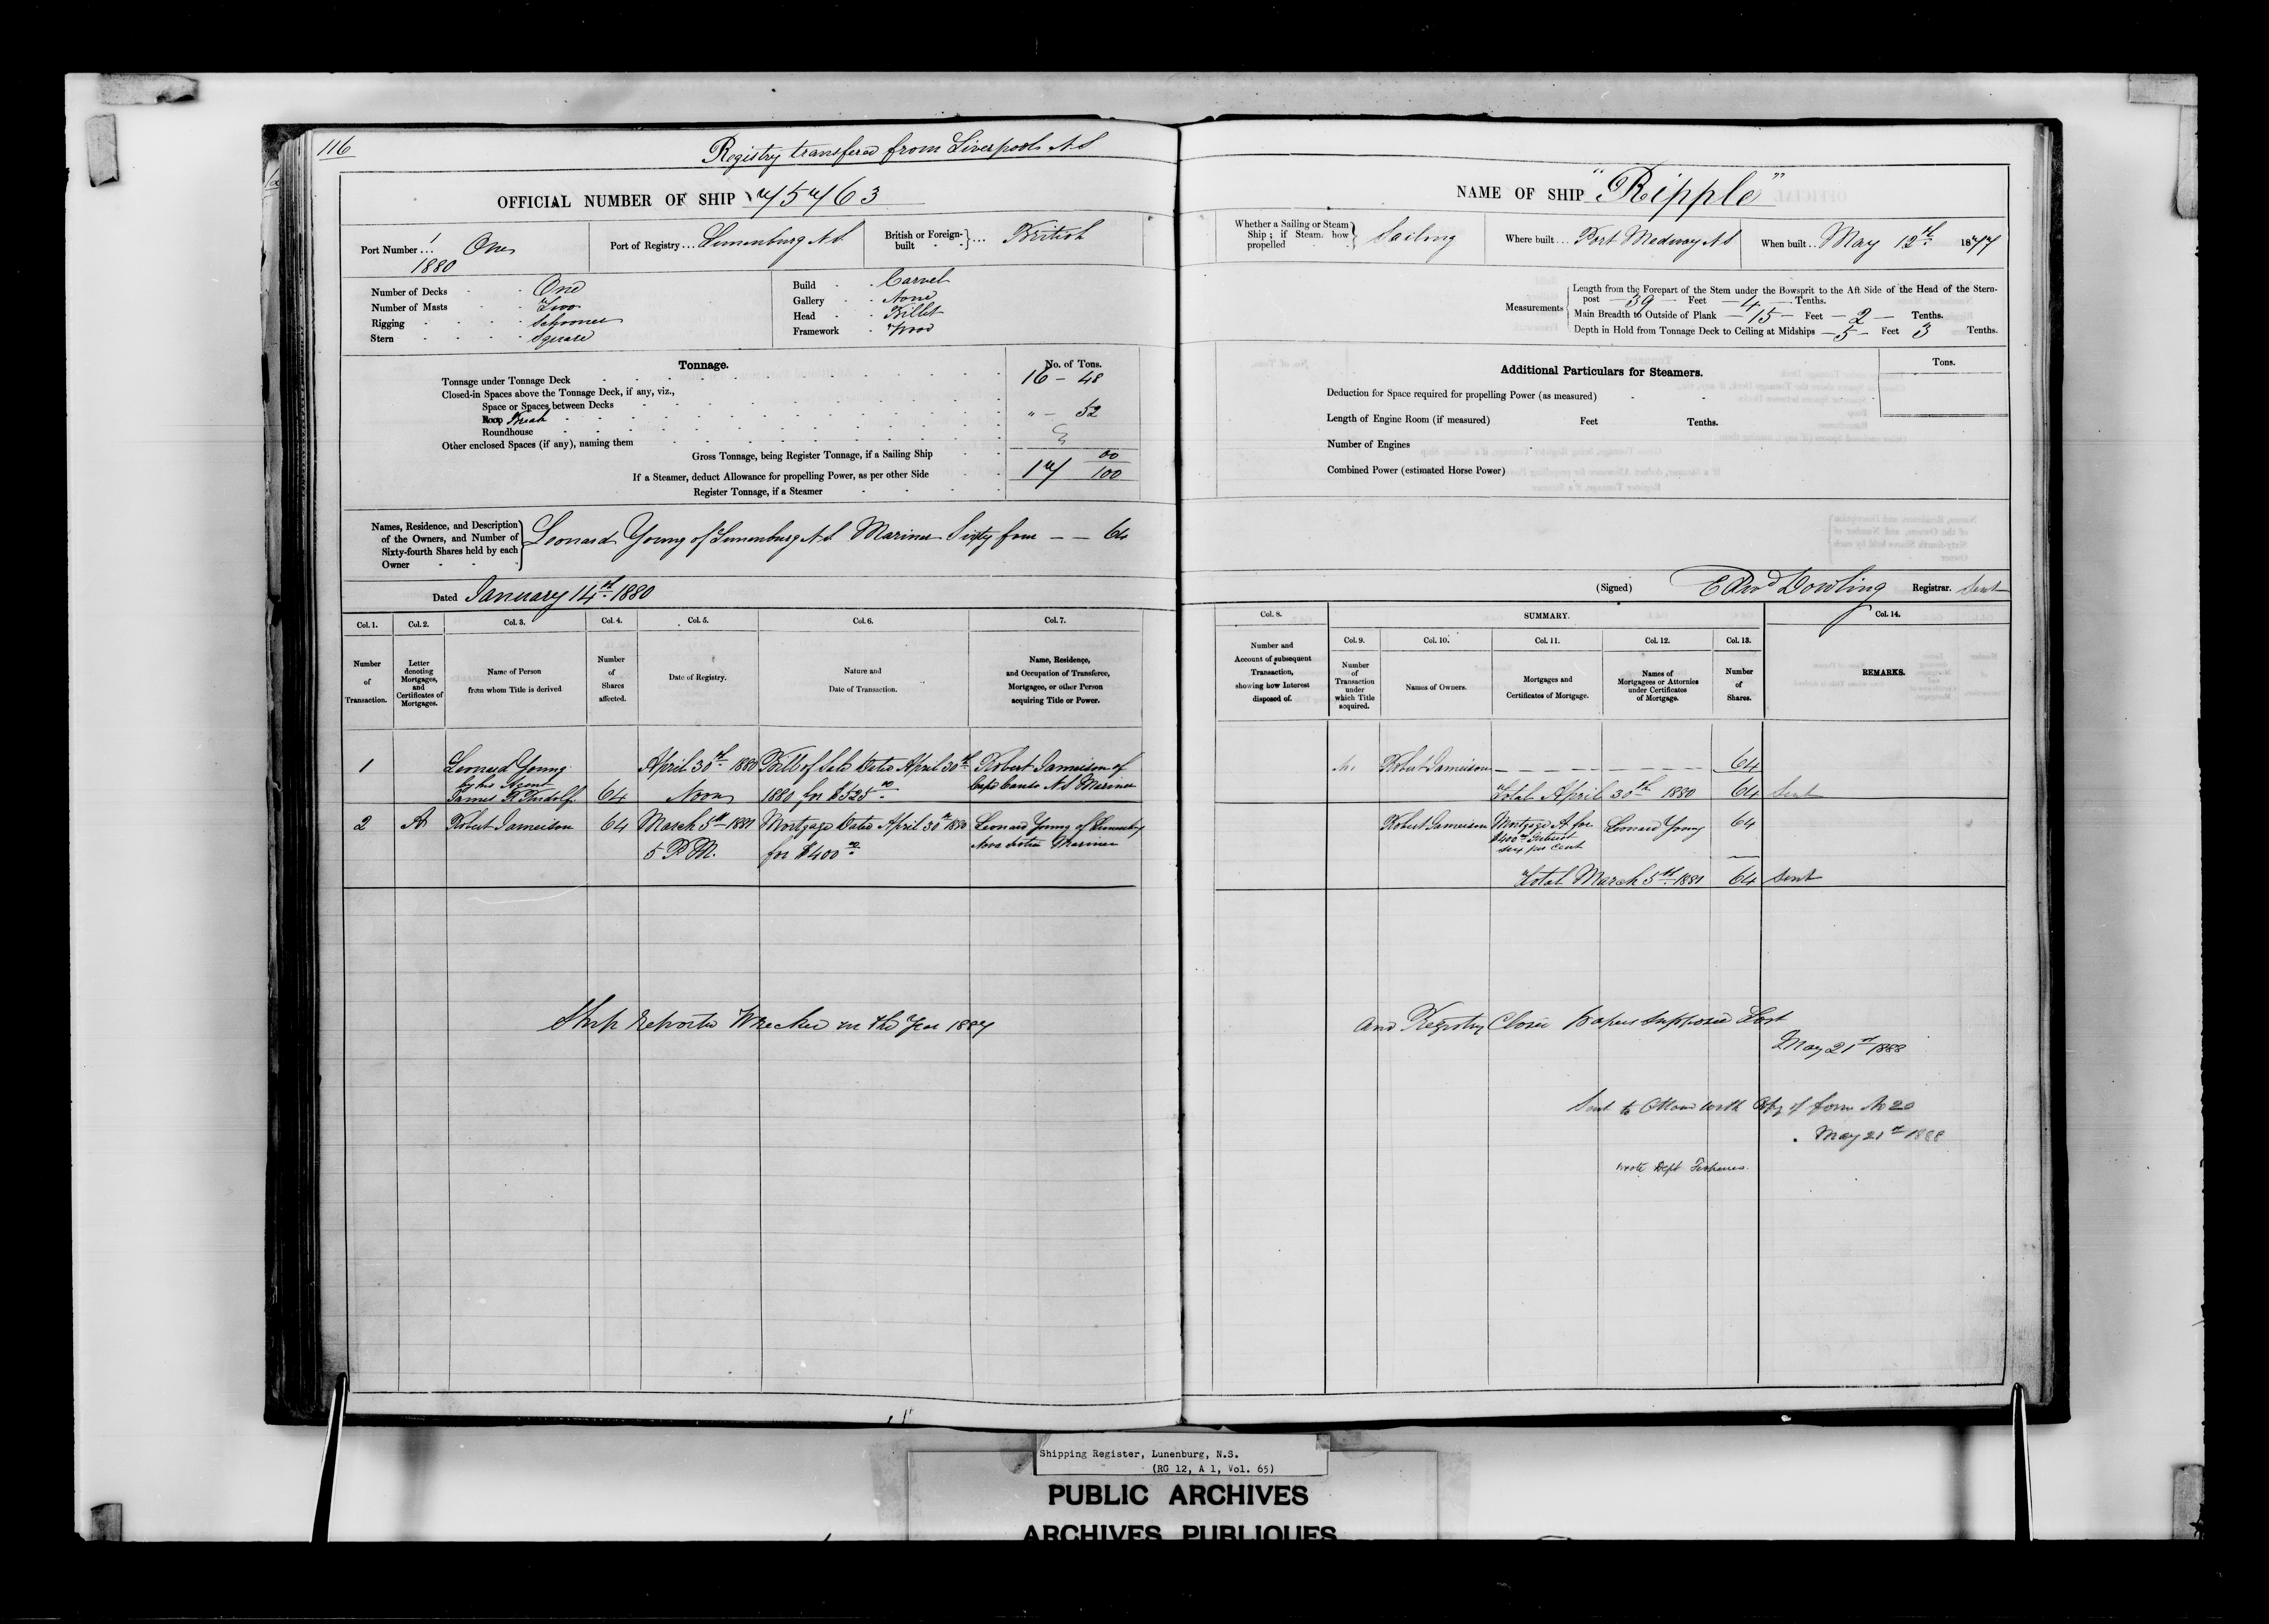 116
Registry transfered from Liverpool N S
OFFICIAL NUMBER OF SHIP 75763
Port Number ... 1 One
1880
Port of Registry ... Lunenburg N S
British or Foreign-built ... British
Number of Decks One
Number of Masts Two
Rigging Schooner
Stern Square
Build Carvel
Gallery None
Head Billet
Framework Wood
Tonnage.
No. of Tons.
Tonnage under Tonnage Deck 16 - 48
Closed-in Spaces above the Tonnage Deck, if any, viz.,
Space or Spaces between Decks
Poop " - 52
Roundhouse
Other enclosed Spaces (if any), naming them
Gross Tonnage, being Register Tonnage, if a Sailing Ship 17 00/100
If a Steamer, deduct Allowance for propelling Power, as per other Side
Register Tonnage, if a Steamer
Names, Residence, and Description
of the Owners, and Number of
Sixty-fourth Shares held by each
Owner
Leonard Young of Lunenburg N S Mariner Sixty four - - 64
Dated January 14th 1880
Col. 1. Col. 2. Col. 3. Col. 4. Col. 5. Col. 6. Col. 7.
Number of Transaction.
Letter denoting Mortgages, and Certificates of Mortgages.
Name of Person from whom Title is derived
Number of Shares affected.
Date of Registry.
Nature and Date of Transaction.
Name, Residence, and Occupation of Transferee, Mortgagee, or other Person acquiring Title or Power.
1 Leonard Young April 30th 1880 Bill of Sale Dated April 30th Robert Jameison of
by his Agent
James R Rudolf 64 Noon 1880 for $525 00 Cape Canso N S Mariner
2 A Robert Jameison 64 March 5th 1881 Mortgage Dated April 30th 1880 Leonard Young of Lunenburg
5 P.M. for $400 00 Nova Scotia Mariner
Ship Reported Wrecked in the Year 1887
NAME OF SHIP "Ripple"
Whether a Sailing or Steam
Ship; if Steam how
propelled
Sailing
Where built ... Port Medway N S
When built ... May 12th 1877
Measurements
Length from the Forepart of the Stem under the Bowsprit to the Aft Side of the Head of the Stern-
post - 39 - Feet - 4 - Tenths.
Main Breadth to Outside of Plank - 15 - Feet - 2 - Tenths.
Depth in Hold from Tonnage Deck to Ceiling at Midships - 5 - Feet 3 Tenths.
Additional Particulars for Steamers.
Tons.
Deduction for Space required for propelling Power (as measured)
Length of Engine Room (if measured) Feet Tenths.
Number of Engines
Combined Power (estimated Horse Power)
(Signed) Edwd Dowling Registrar. Sent
Col. 8. SUMMARY. Col. 14.
Col. 9. Col. 10. Col. 11. Col. 12. Col. 13.
Number and Account of subsequent Transaction, showing how Interest disposed of.
Number of Transaction under which Title acquired.
Names of Owners.
Mortgages and Certificates of Mortgage.
Names of Mortgagees or Attornies under Certificates of Mortgage.
Number of Shares.
REMARKS.
Robert Jameison 64
Total April 30th 1880 64 Sent
Robert Jameison Mortgage A for Leonard Young 64
$400 00 Interest
six per cent
Total March 5th 1881 64 Sent
and Registry Closed Papers supposed Lost
May 21st 1888
Sent to Ottawa with Copy of form No 20
May 21st 1888
wrote Dept Fisheries
Shipping Register, Lunenburg, N.S.
(RG 12, A 1, Vol. 65)
PUBLIC ARCHIVES
ARCHIVES PUBLIQUES